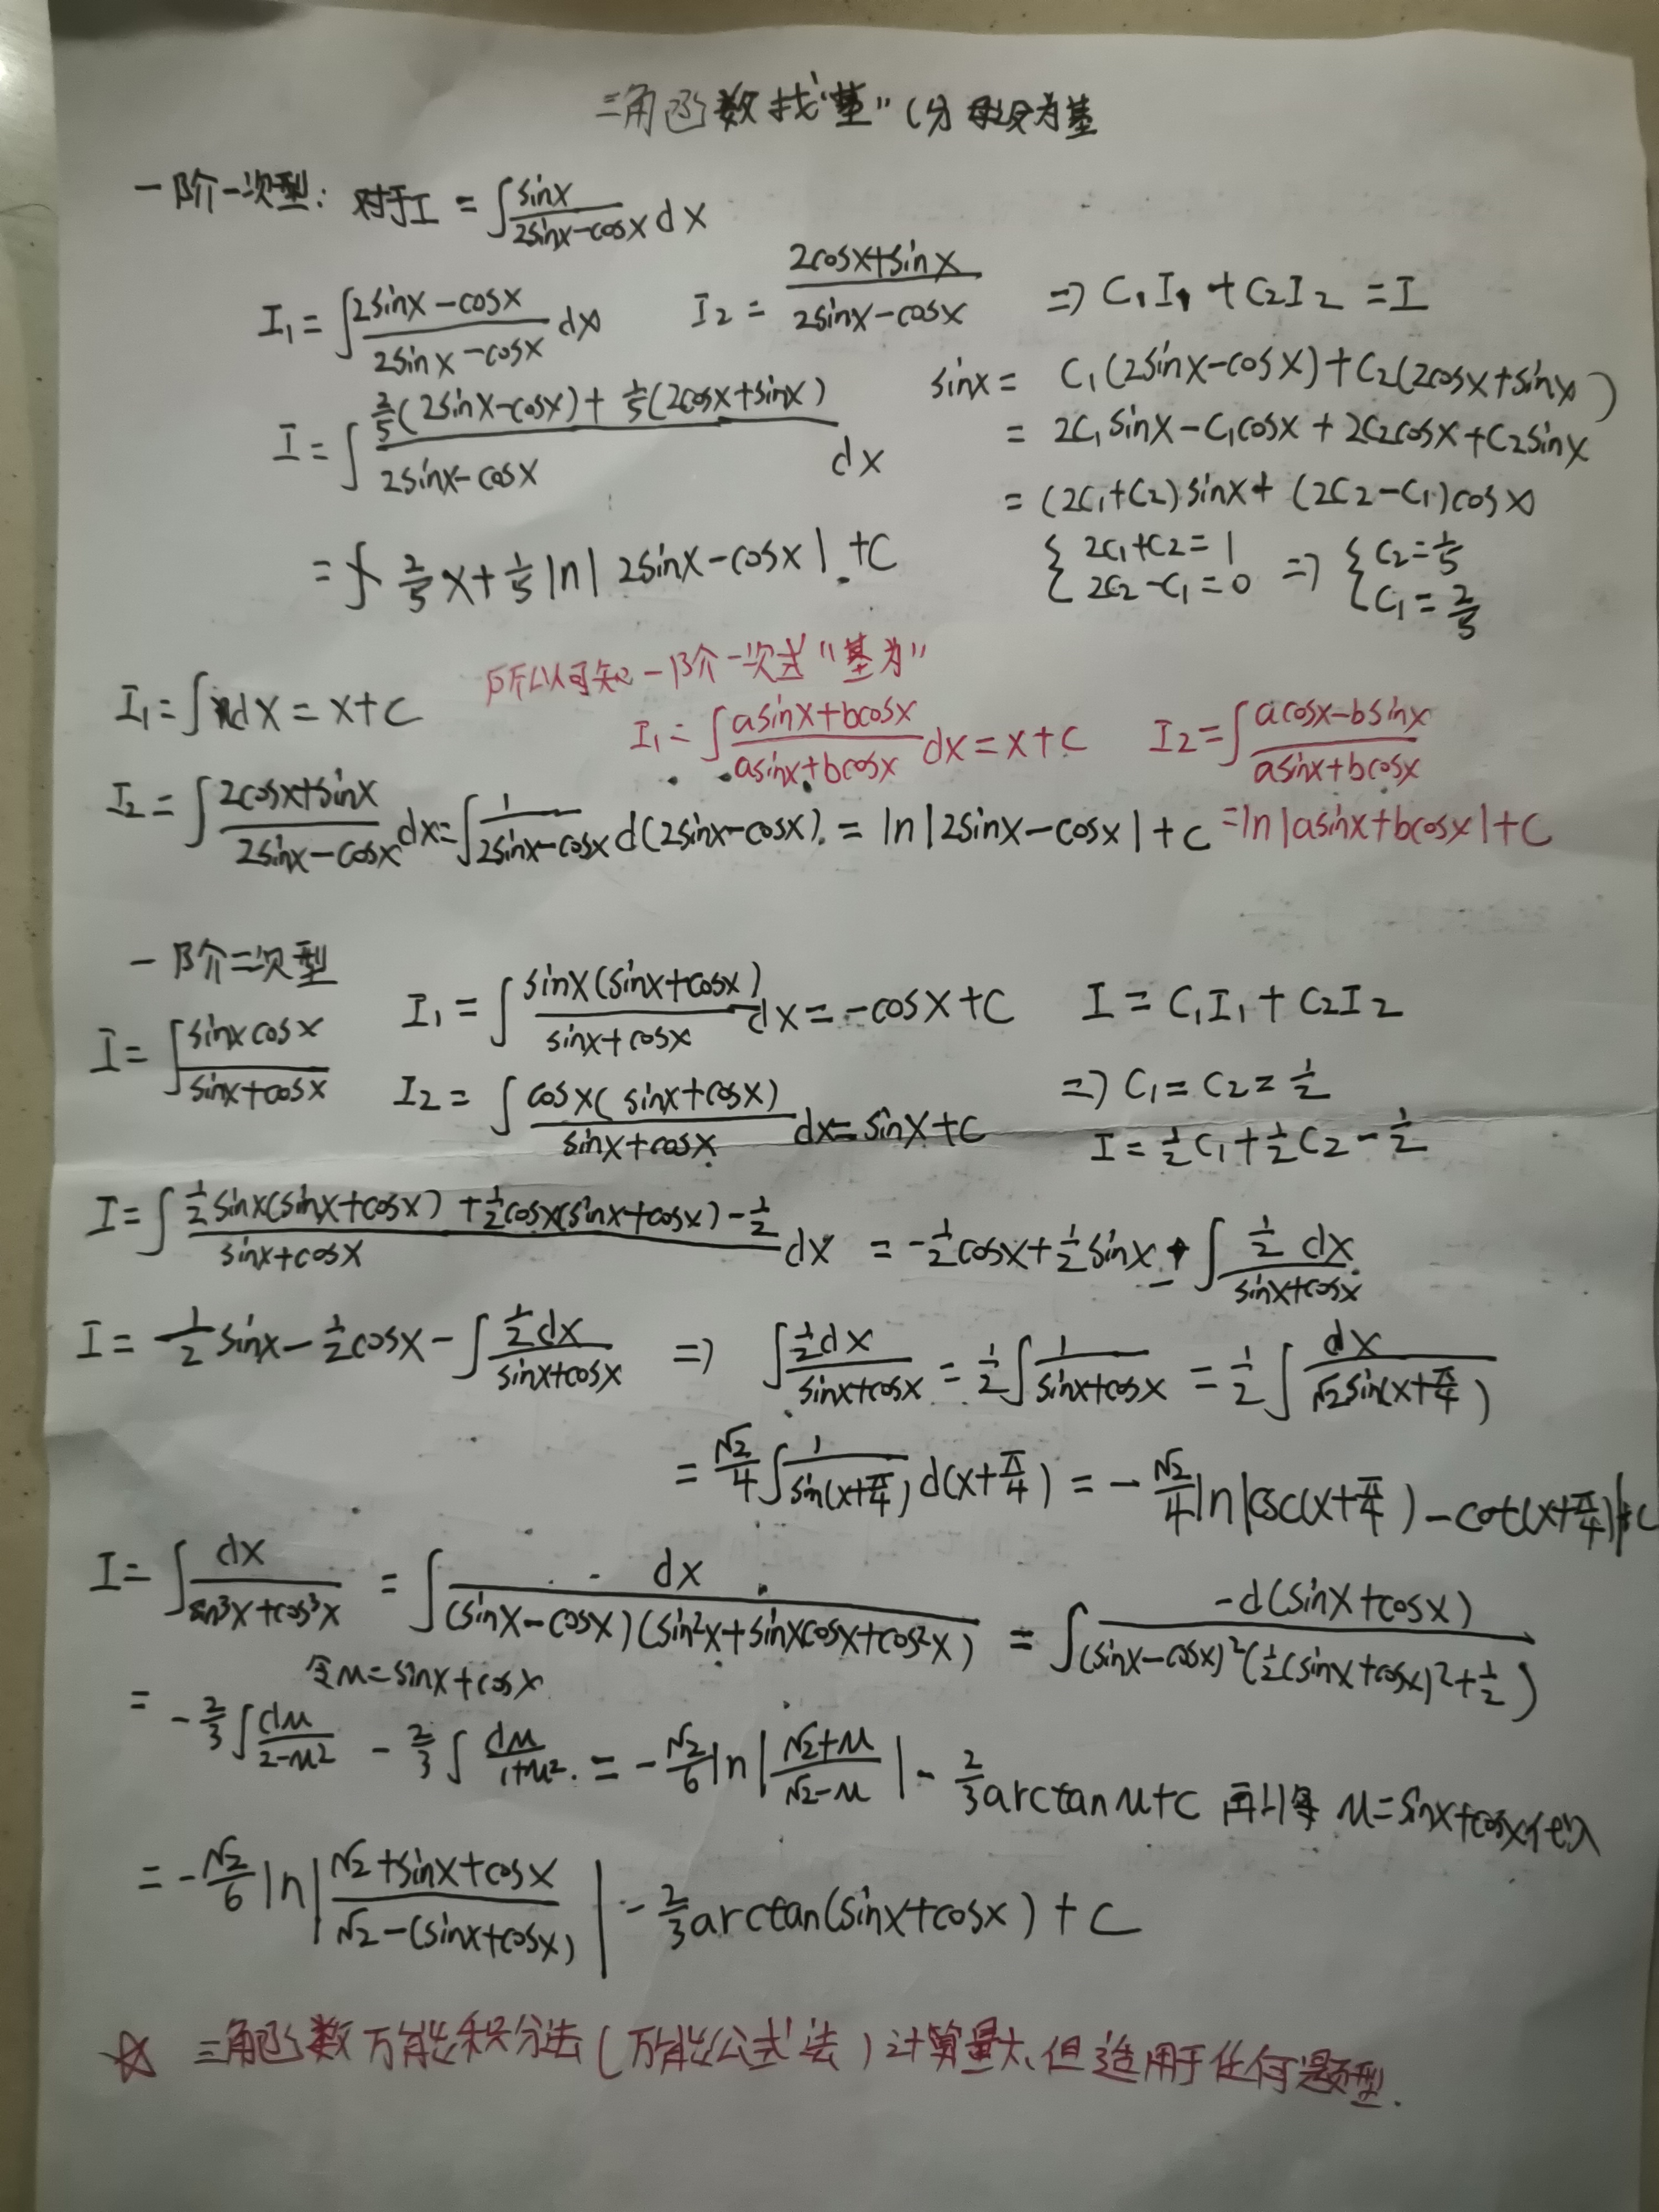 三角函数找“基”(分母设为基
一阶一次型: 对于I = ∫ sinx/(2sinx-cosx) dx
I₁ = ∫ (2sinx-cosx)/(2sinx-cosx) dx I₂ = (2cosx+sinx)/(2sinx-cosx) => C₁I₁ + C₂I₂ = I
sinx = C₁(2sinx-cosx) + C₂(2cosx+sinx)
I = ∫ (2/5(2sinx-cosx) + 1/5(2cosx+sinx))/(2sinx-cosx) dx
= 2C₁sinx - C₁cosx + 2C₂cosx + C₂sinx
= (2C₁+C₂)sinx + (2C₂-C₁)cosx
= 2/5 x + 1/5 ln|2sinx-cosx| + C
{ 2C₁+C₂=1 2C₂-C₁=0 => { C₂=1/5 C₁=2/5
所以可知一阶一次式“基为”
I₁ = ∫dx = x+C
I₁ = ∫ (asinx+bcosx)/(asinx+bcosx) dx = x+C I₂ = ∫ (acosx-bsinx)/(asinx+bcosx)
I₂ = ∫ (2cosx+sinx)/(2sinx-cosx) dx = ∫ 1/(2sinx-cosx) d(2sinx-cosx) = ln|2sinx-cosx| + C = ln|asinx+bcosx| + C
一阶二次型
I = ∫ sinxcosx/(sinx+cosx)
I₁ = ∫ sinx(sinx+cosx)/(sinx+cosx) dx = -cosx+C I = C₁I₁ + C₂I₂
I₂ = ∫ cosx(sinx+cosx)/(sinx+cosx) dx = sinx+C => C₁ = C₂ = 1/2
I = 1/2 C₁ + 1/2 C₂ - 1/2
I = ∫ (1/2 sinx(sinx+cosx) + 1/2 cosx(sinx+cosx) - 1/2)/(sinx+cosx) dx = -1/2 cosx + 1/2 sinx - ∫ (1/2 dx)/(sinx+cosx)
I = 1/2 sinx - 1/2 cosx - ∫ (1/2 dx)/(sinx+cosx) => ∫ (1/2 dx)/(sinx+cosx) = 1/2 ∫ 1/(sinx+cosx) = 1/2 ∫ dx/(√2 sin(x+π/4))
= √2/4 ∫ 1/sin(x+π/4) d(x+π/4) = -√2/4 ln|csc(x+π/4) - cot(x+π/4)| + C
I = ∫ dx/(sin³x+cos³x) = ∫ dx/((sinx-cosx)(sin²x+sinxcosx+cos²x)) = ∫ -d(sinx+cosx)/((sinx-cosx)²(1/2(sinx+cosx)²+1/2))
令u=sinx+cosx
= -2/3 ∫ du/(2-u²) - 2/3 ∫ du/(1+u²) = -√2/6 ln|(√2+u)/(√2-u)| - 2/3 arctanu+C 再将 u=sinx+cosx代入
= -√2/6 ln|(√2+sinx+cosx)/(√2-(sinx+cosx))| - 2/3 arctan(sinx+cosx) + C
☆ 三角函数万能积分法(万能公式法)计算量大,但适用于任何题型.